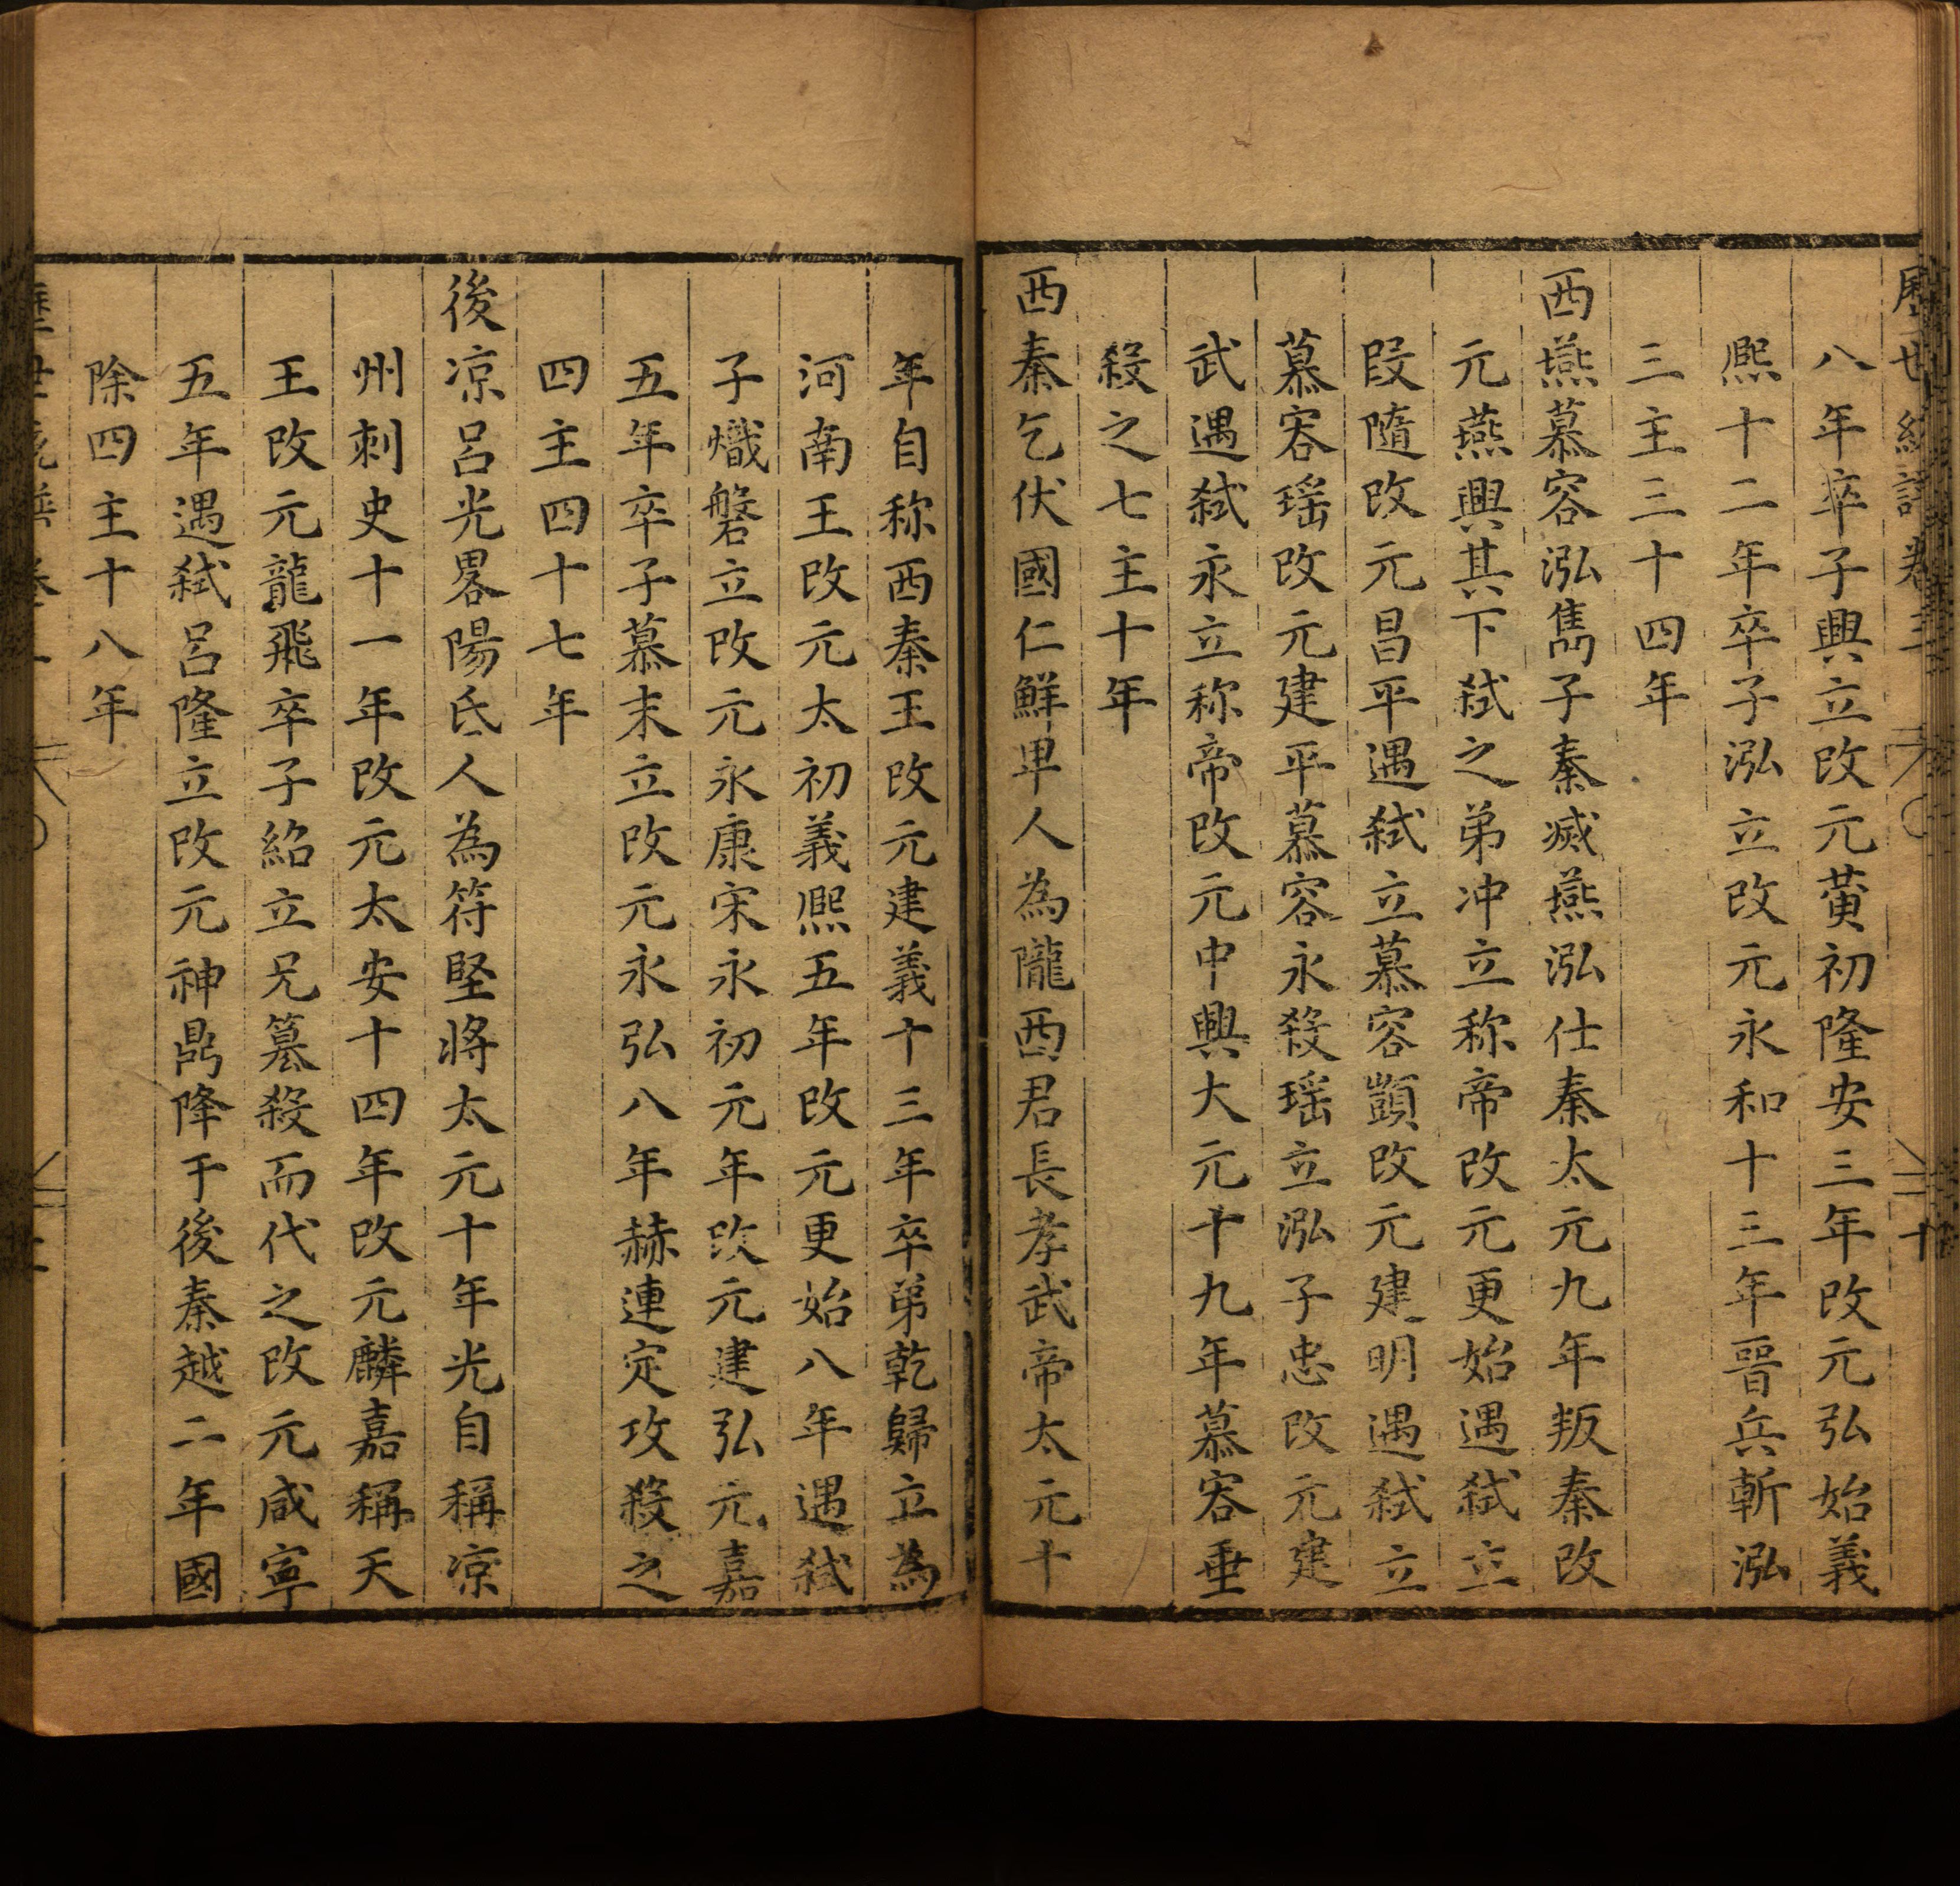 八年卒子興立改元黄初隆安三年改元弘始義
熈十二年卒子泓立改元永和十三年晉兵斬泓
三主三十四年
西燕慕容泓儁子秦滅燕泓仕秦太元九年叛秦改
元燕興其下弑之弟冲立称帝改元更始遇弑立
段隨改元昌平遇弑立慕容顗改元建明遇弑立
慕容瑶改元建平慕容永殺瑶立泓子忠改元建
武遇弑永立称帝改元中興大元十九年慕容垂
殺之七主十年
西秦乞伏國仁鮮卑人為隴西君長孝武帝太元十
年自称西秦王改元建義十三年卒弟乾歸立為
河南王改元太初義熈五年改元更始八年遇弑
子熾磐立改元永康宋永初元年改元建弘元嘉
五年卒子慕末立改元永弘八年赫連定攻殺之
四主四十七年
後凉呂光畧陽氐人為符堅將太元十年光自稱凉
州刺史十一年改元太安十四年改元麟嘉稱天
王改元龍飛卒子紹立兄篡殺而代之改元咸寧
五年遇弑呂隆立改元神鼎降于後秦越二年國
除四主十八年